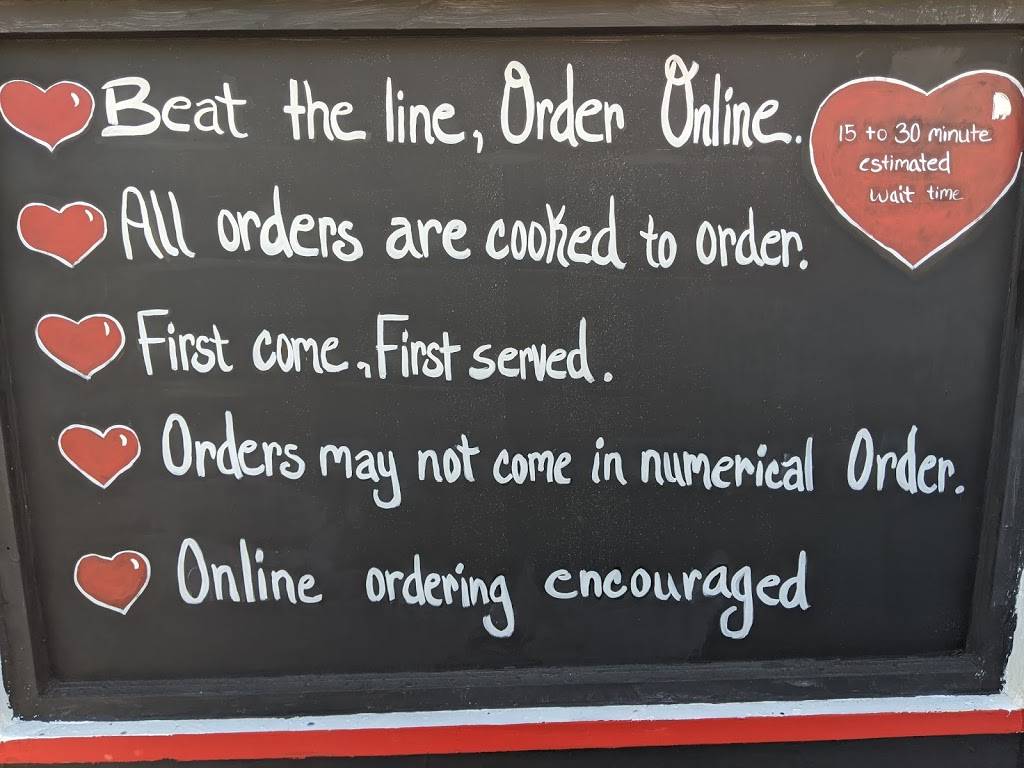 Beat the line, Order Online.
15 to 30 minute
estimated
wait time
All orders are cooked to order.
First come, First served.
Orders may not come in numerical Order.
Online ordering encouraged